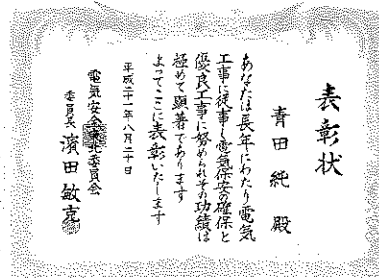 表彰状
青田純 殿
あなたは長年にわたり電気
工事に従事し電気保安の確保と
優良工事に努められその功績は
極めて顕著であります
よってここに表彰いたします
平成二十一年八月二十日
電気安全東北委員会
委員長 濱田敏克